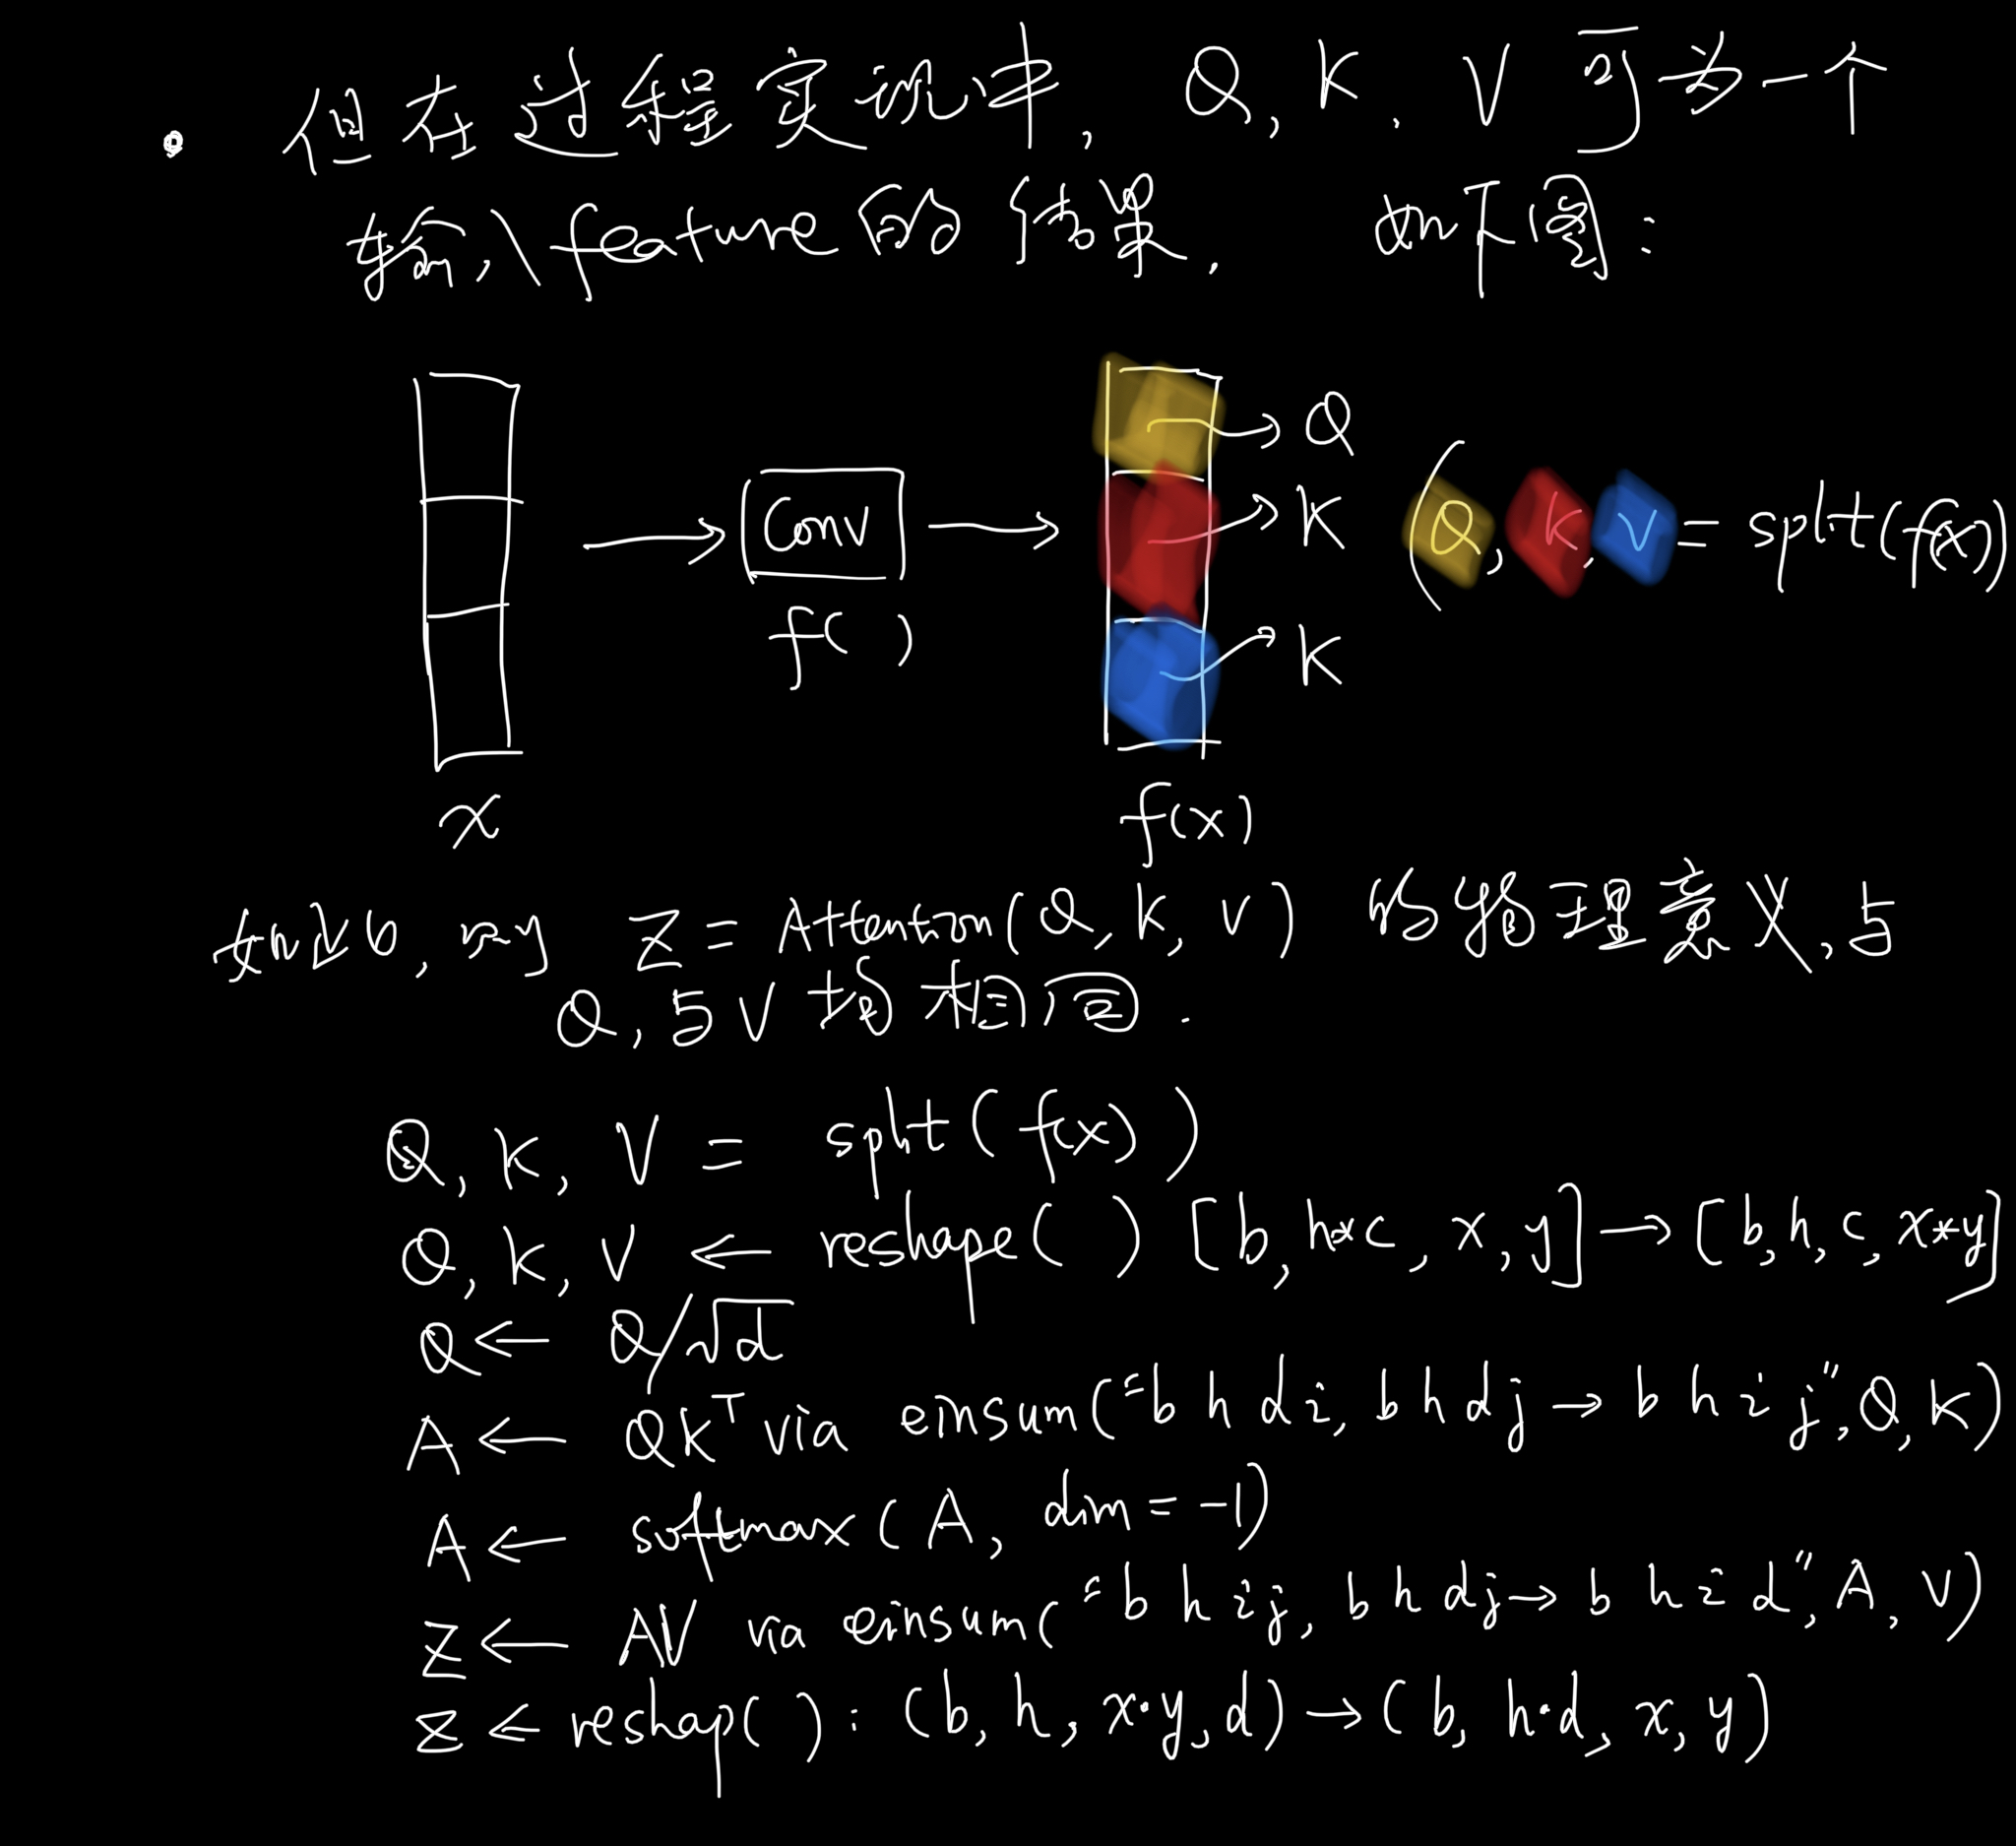 但在过程实现中, Q, K, V 可为一个
输入feature的结果. 如下图:
Q
Conv
K
(Q, K, V = split(f(x))
f( )
K
x
f(x)
如此, 则 Z = Attention(Q, K, V) 的物理意义, 与
Q, 与V均相同.
Q, K, V = split(f(x))
Q, K, V ← reshape( ) [b, h*c, x, y] → [b, h, c, x*y]
Q ← Q/√d
A ← QKᵀ via einsum("b h d i, b h d j → b h i j", Q, K)
A ← softmax(A, dim = -1)
Z ← AV via einsum("b h i j, b h d j → b h i d", A, V)
Z ← reshap( ): (b, h, x·y, d) → (b, h·d, x, y)